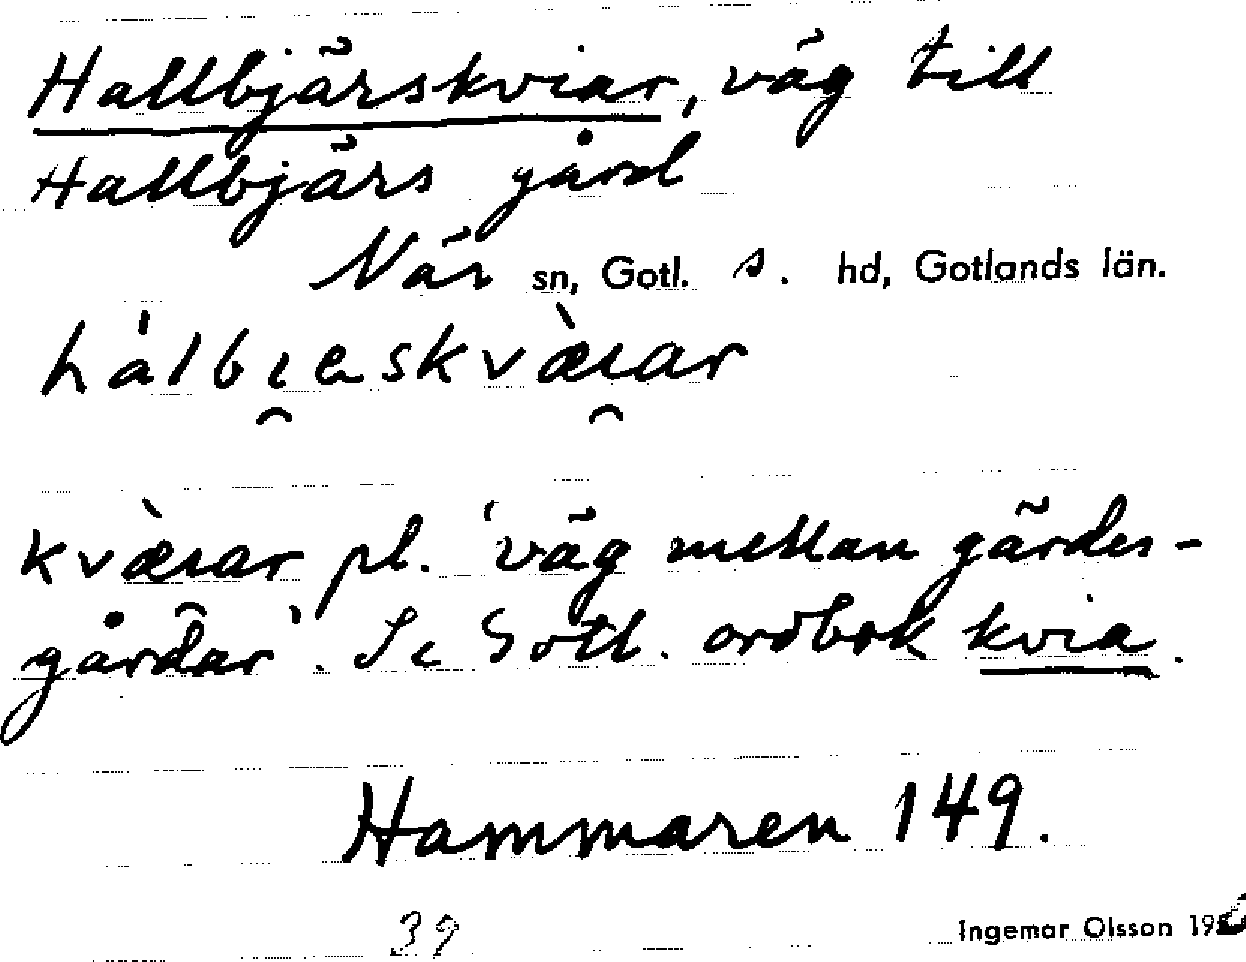 Hallbjärskviar, väg till
Hallbjärs gård
När sn, Gotl. s. hd, Gotlands län.
hálbı̯eskvæ̀ı̯ar
kvæ̀ıar pl. 'väg mellan gärdes-
gårdar'. Se Gotl. ordbok kvia.
Hammaren 149.
39
Ingemar Olsson